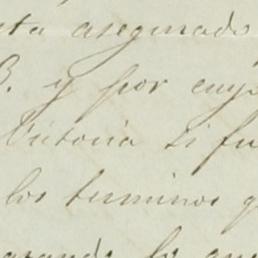 asegurado
B. y por cuy
Victoria si fu
los terminos q